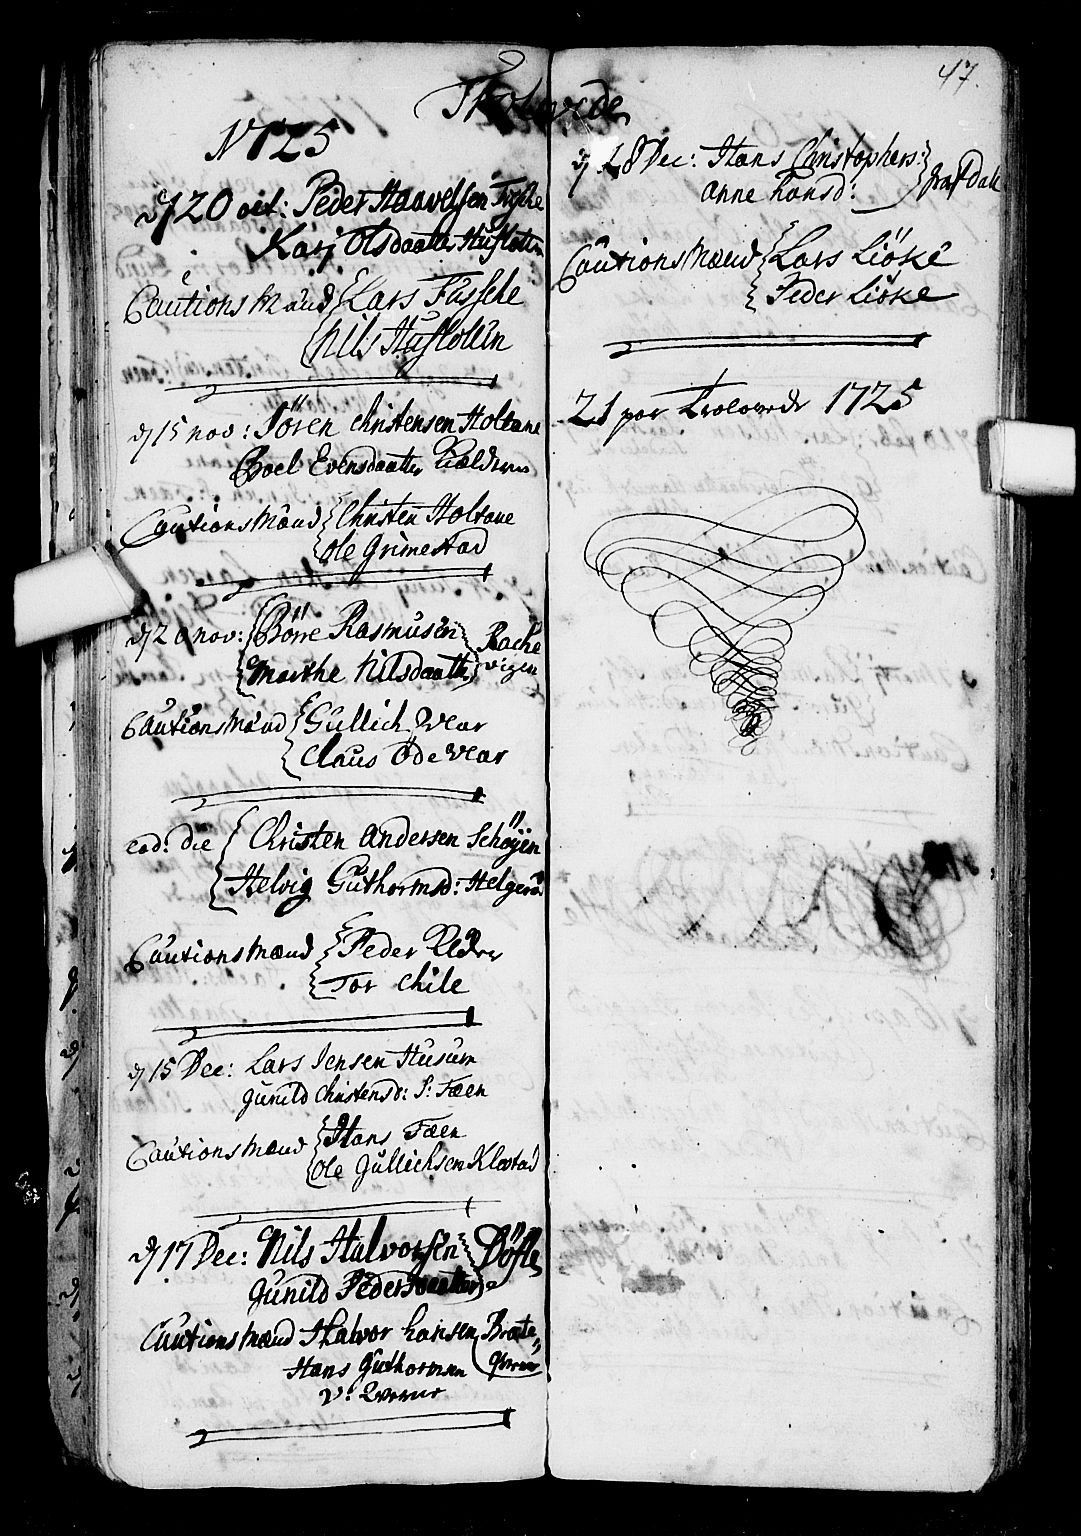 Trolovede
1725
d 20 oct: Peder Haavelsen Fysche
Karj Olsdaatter Husloten
Cautions Mænd Lars Fussche
Nils Husloten
d 15 nov: Sören Christensen Holtane
Boel Evensdaatter
Cautions Mænd Christen Holtane
Ole Grimestad
d 20 nov: Börre Rasmusen Racke
Marthe Nilsdaatter vigen
Cautions Mænd Gullich Vear
Claus Öde Vear
eod: die Christen Andersen Schöyen
Helvig Guthormsd: Helgerö
Cautions Mænd Peder
Tor Chile
d 15 Dec: Lars Jensen Husum
Gunild Christensd: S: Fæen
Cautions Mænd Hans Fæen
Ole Gullichsen Klovtad
d 17 Dec: Nils Halvorsen Böfle
Gunild Pedersdaatter
Cautions Mænd Halvor Hansen Bræte
Hans Guthormsen
v:
47.
d 28 Dec: Hans Christophers:
Anne Hansd: Dale
Cautions Mænd Lars Liöke
Peder Liöke
21 par Trolovede 1725